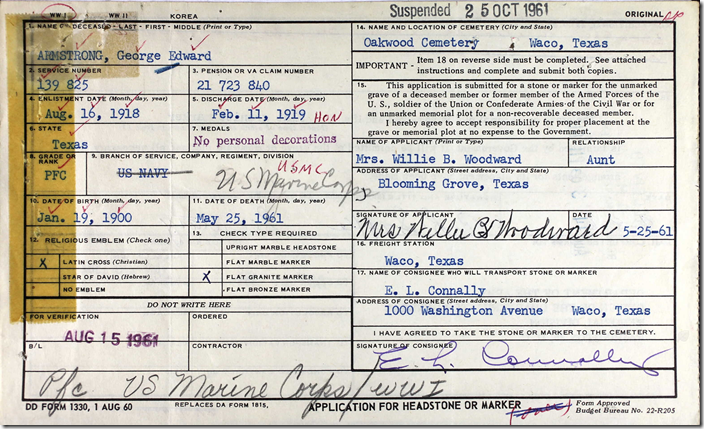 WW I WW II KOREA
Suspended 25 OCT 1961 ORIGINAL
1. NAME OF DECEASED - LAST - FIRST - MIDDLE (Print or Type)
ARMSTRONG, George Edward
2. SERVICE NUMBER
139 825
3. PENSION OR VA CLAIM NUMBER
21 723 840
4. ENLISTMENT DATE (Month, day, year)
Aug. 16, 1918
5. DISCHARGE DATE (Month, day, year)
Feb. 11, 1919 HON
6. STATE
Texas
7. MEDALS
No personal decorations
8. GRADE OR RANK
PFC
9. BRANCH OF SERVICE, COMPANY, REGIMENT, DIVISION
US NAVY
USMC
US Marine Corps
10. DATE OF BIRTH (Month, day, year)
Jan. 19, 1900
11. DATE OF DEATH (Month, day, year)
May 25, 1961
12. RELIGIOUS EMBLEM (Check one)
X LATIN CROSS (Christian)
STAR OF DAVID (Hebrew)
NO EMBLEM
13. CHECK TYPE REQUIRED
UPRIGHT MARBLE HEADSTONE
FLAT MARBLE MARKER
X FLAT GRANITE MARKER
FLAT BRONZE MARKER
DO NOT WRITE HERE
FOR VERIFICATION
AUG 15 1961
ORDERED
B/L
CONTRACTOR
14. NAME AND LOCATION OF CEMETERY (City and State)
Oakwood Cemetery Waco, Texas
IMPORTANT - Item 18 on reverse side must be completed. See attached
instructions and complete and submit both copies.
15. This application is submitted for a stone or marker for the unmarked
grave of a deceased member or former member of the Armed Forces of the
U. S., soldier of the Union or Confederate Armies of the Civil War or for
an unmarked memorial plot for a non-recoverable deceased member.
I hereby agree to accept responsibility for proper placement at the
grave or memorial plot at no expense to the Government.
NAME OF APPLICANT (Print or Type)
Mrs. Willie B. Woodward
RELATIONSHIP
Aunt
ADDRESS OF APPLICANT (Street address, City and State)
Blooming Grove, Texas
SIGNATURE OF APPLICANT
Mrs Willie B Woodward
DATE
5-25-61
16. FREIGHT STATION
Waco, Texas
17. NAME OF CONSIGNEE WHO WILL TRANSPORT STONE OR MARKER
E. L. Connally
ADDRESS OF CONSIGNEE (Street address, City and State)
1000 Washington Avenue Waco, Texas
I HAVE AGREED TO TAKE THE STONE OR MARKER TO THE CEMETERY.
SIGNATURE OF CONSIGNEE
E. L. Connally
Pfc US Marine Corps/WWI
DD FORM 1330, 1 AUG 60 REPLACES DA FORM 1815, APPLICATION FOR HEADSTONE OR MARKER
Form Approved
Budget Bureau No. 22-R205